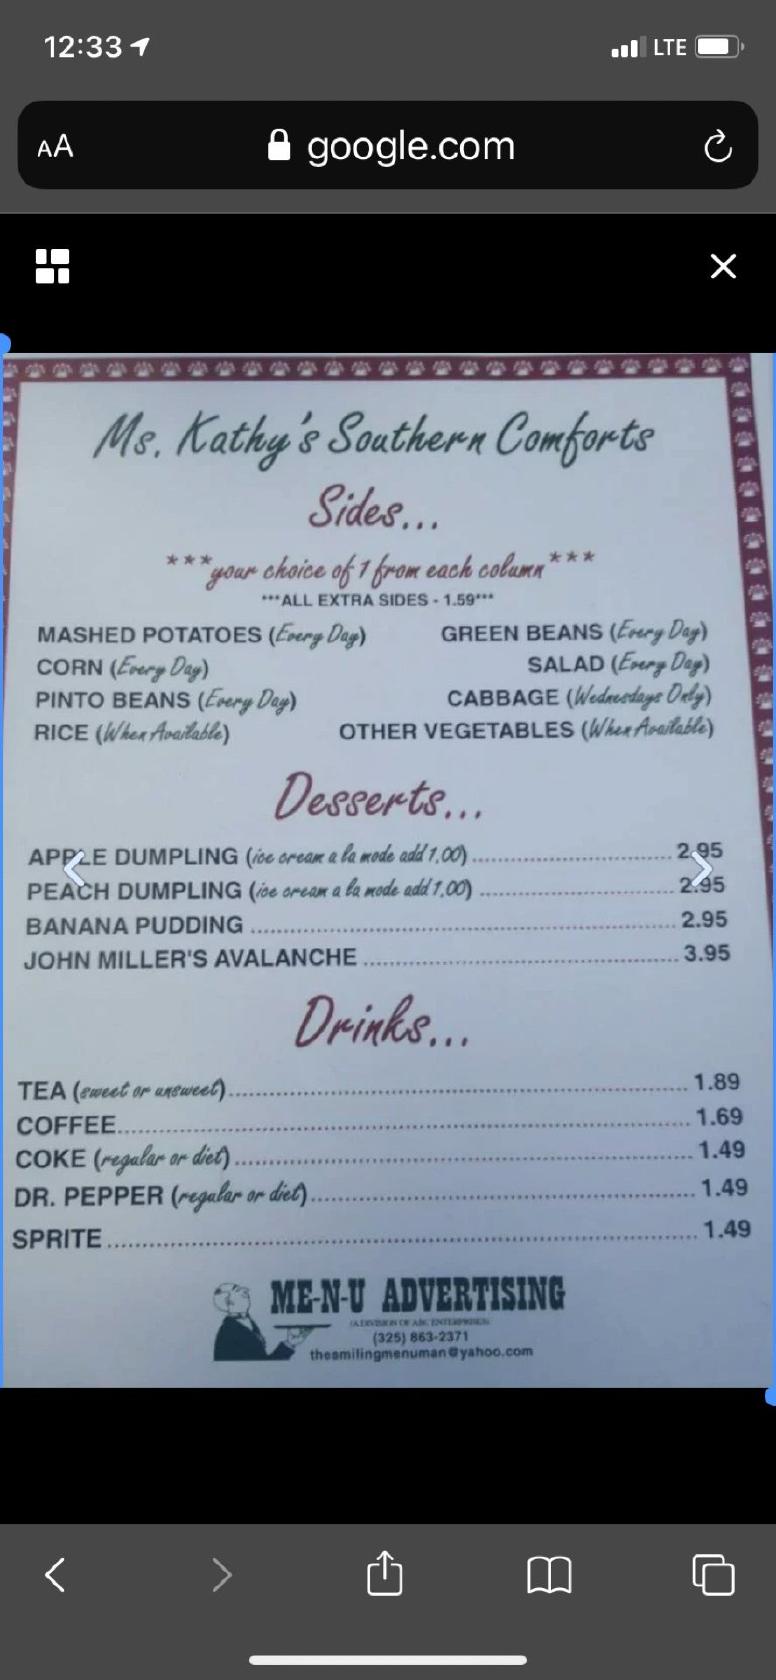 12:33
LTE
AA
google.com
Ms. Kathy's Southern Comforts
Sides...
***your choice of 1 from each column***
***ALL EXTRA SIDES - 1.59***
MASHED POTATOES (Every Day) GREEN BEANS (Every Day)
CORN (Every Day) SALAD (Every Day)
PINTO BEANS (Every Day) CABBAGE (Wednesdays Only)
RICE (When Available) OTHER VEGETABLES (When Available)
Desserts...
APPLE DUMPLING (ice cream a la mode add 1.00) 2.95
PEACH DUMPLING (ice cream a la mode add 1.00) 2.95
BANANA PUDDING 2.95
JOHN MILLER'S AVALANCHE 3.95
Drinks...
TEA (sweet or unsweet) 1.89
COFFEE 1.69
COKE (regular or diet) 1.49
DR. PEPPER (regular or diet) 1.49
SPRITE 1.49
ME-N-U ADVERTISING
(A DIVISION OF ABC ENTERPRISES)
(325) 863-2371
thesmilingmenuman@yahoo.com